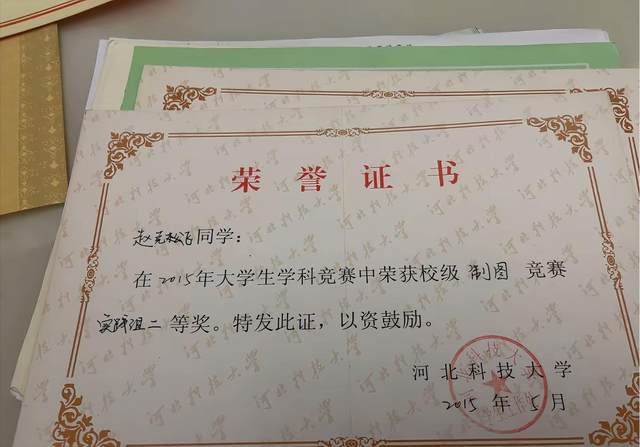 荣誉证书
同学:
在2015年大学生学科竞赛中荣获校级 制图 竞赛
二等奖。特发此证,以资鼓励。
河北科技大学
2015 年 5 月